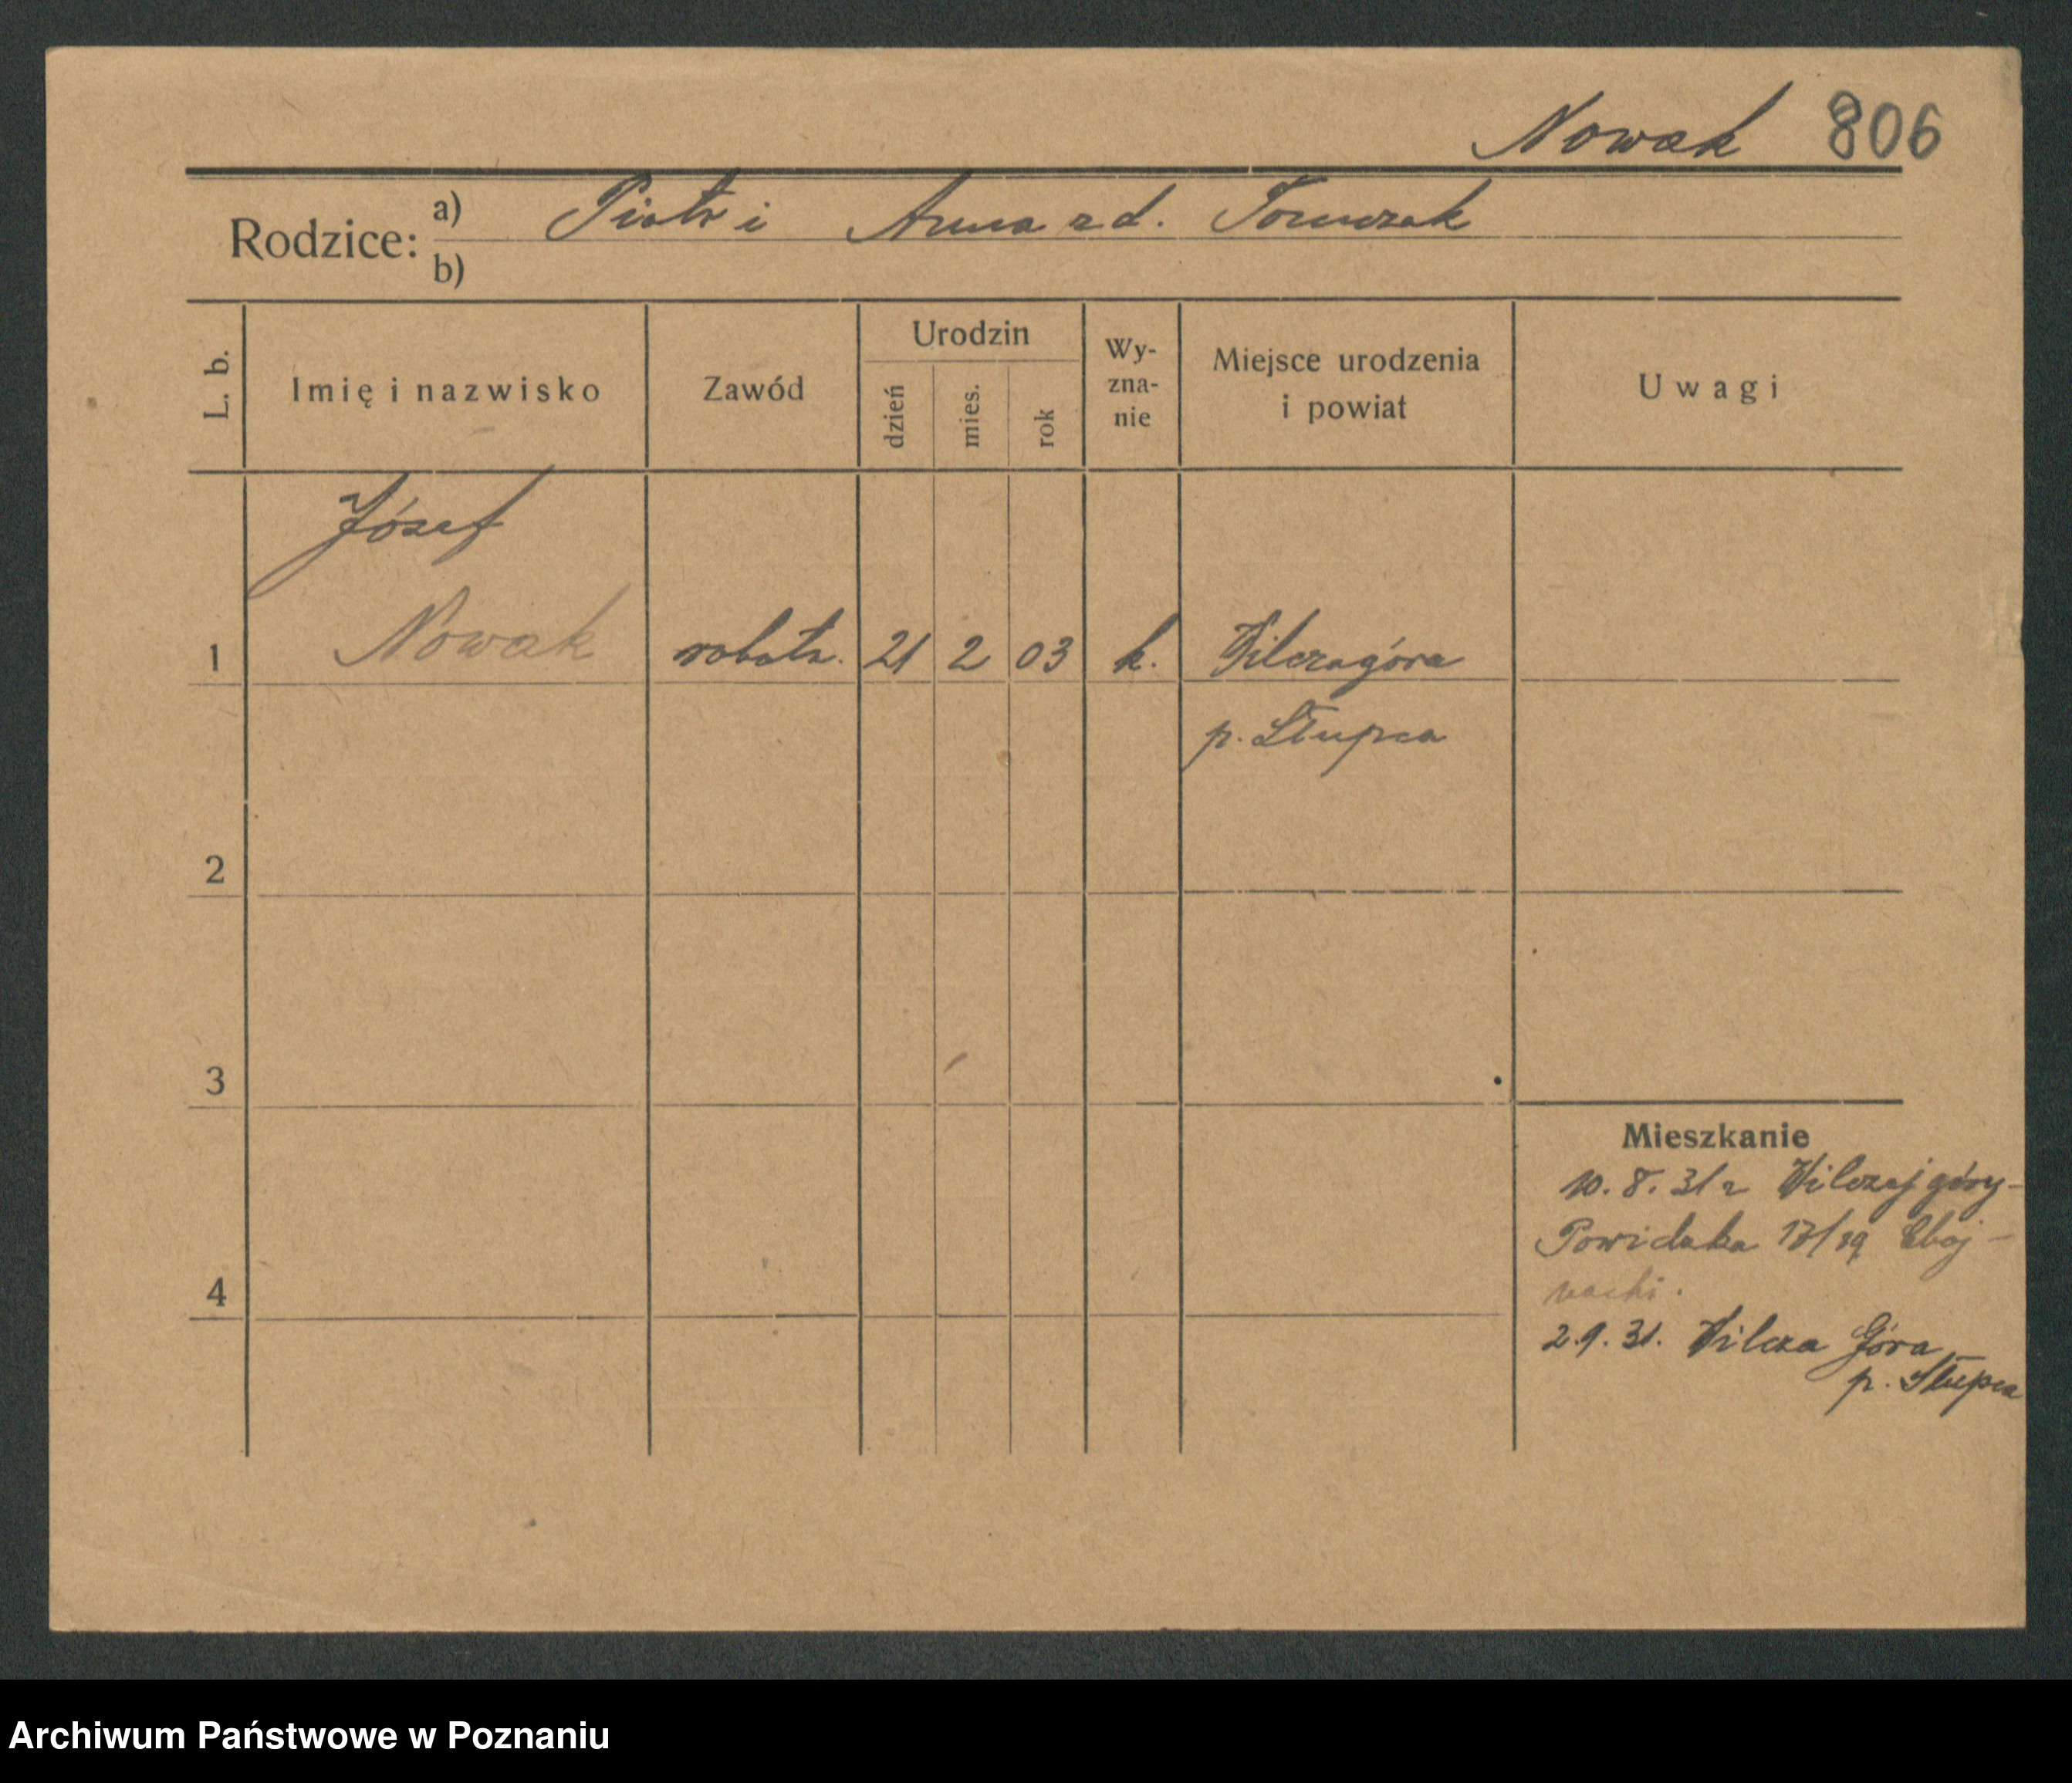 Nowak 806
Rodzice: a) Piotr i Anna zd. Tomczak
b)
L. b.
Imię i nazwisko
Zawód
Urodzin
dzień
mies.
rok
Wy-
zna-
nie
Miejsce urodzenia
i powiat
Uwagi
Józef
1 Nowak robotn. 21 2 03 k. Wilczagóra
p. Słupca
2
3
4
Mieszkanie
10. 8. 31 z Wilczejgóry-
Powidzka 17/19
2.9. 31. Wilcza Góra
p. Słupca
Archiwum Państwowe w Poznaniu